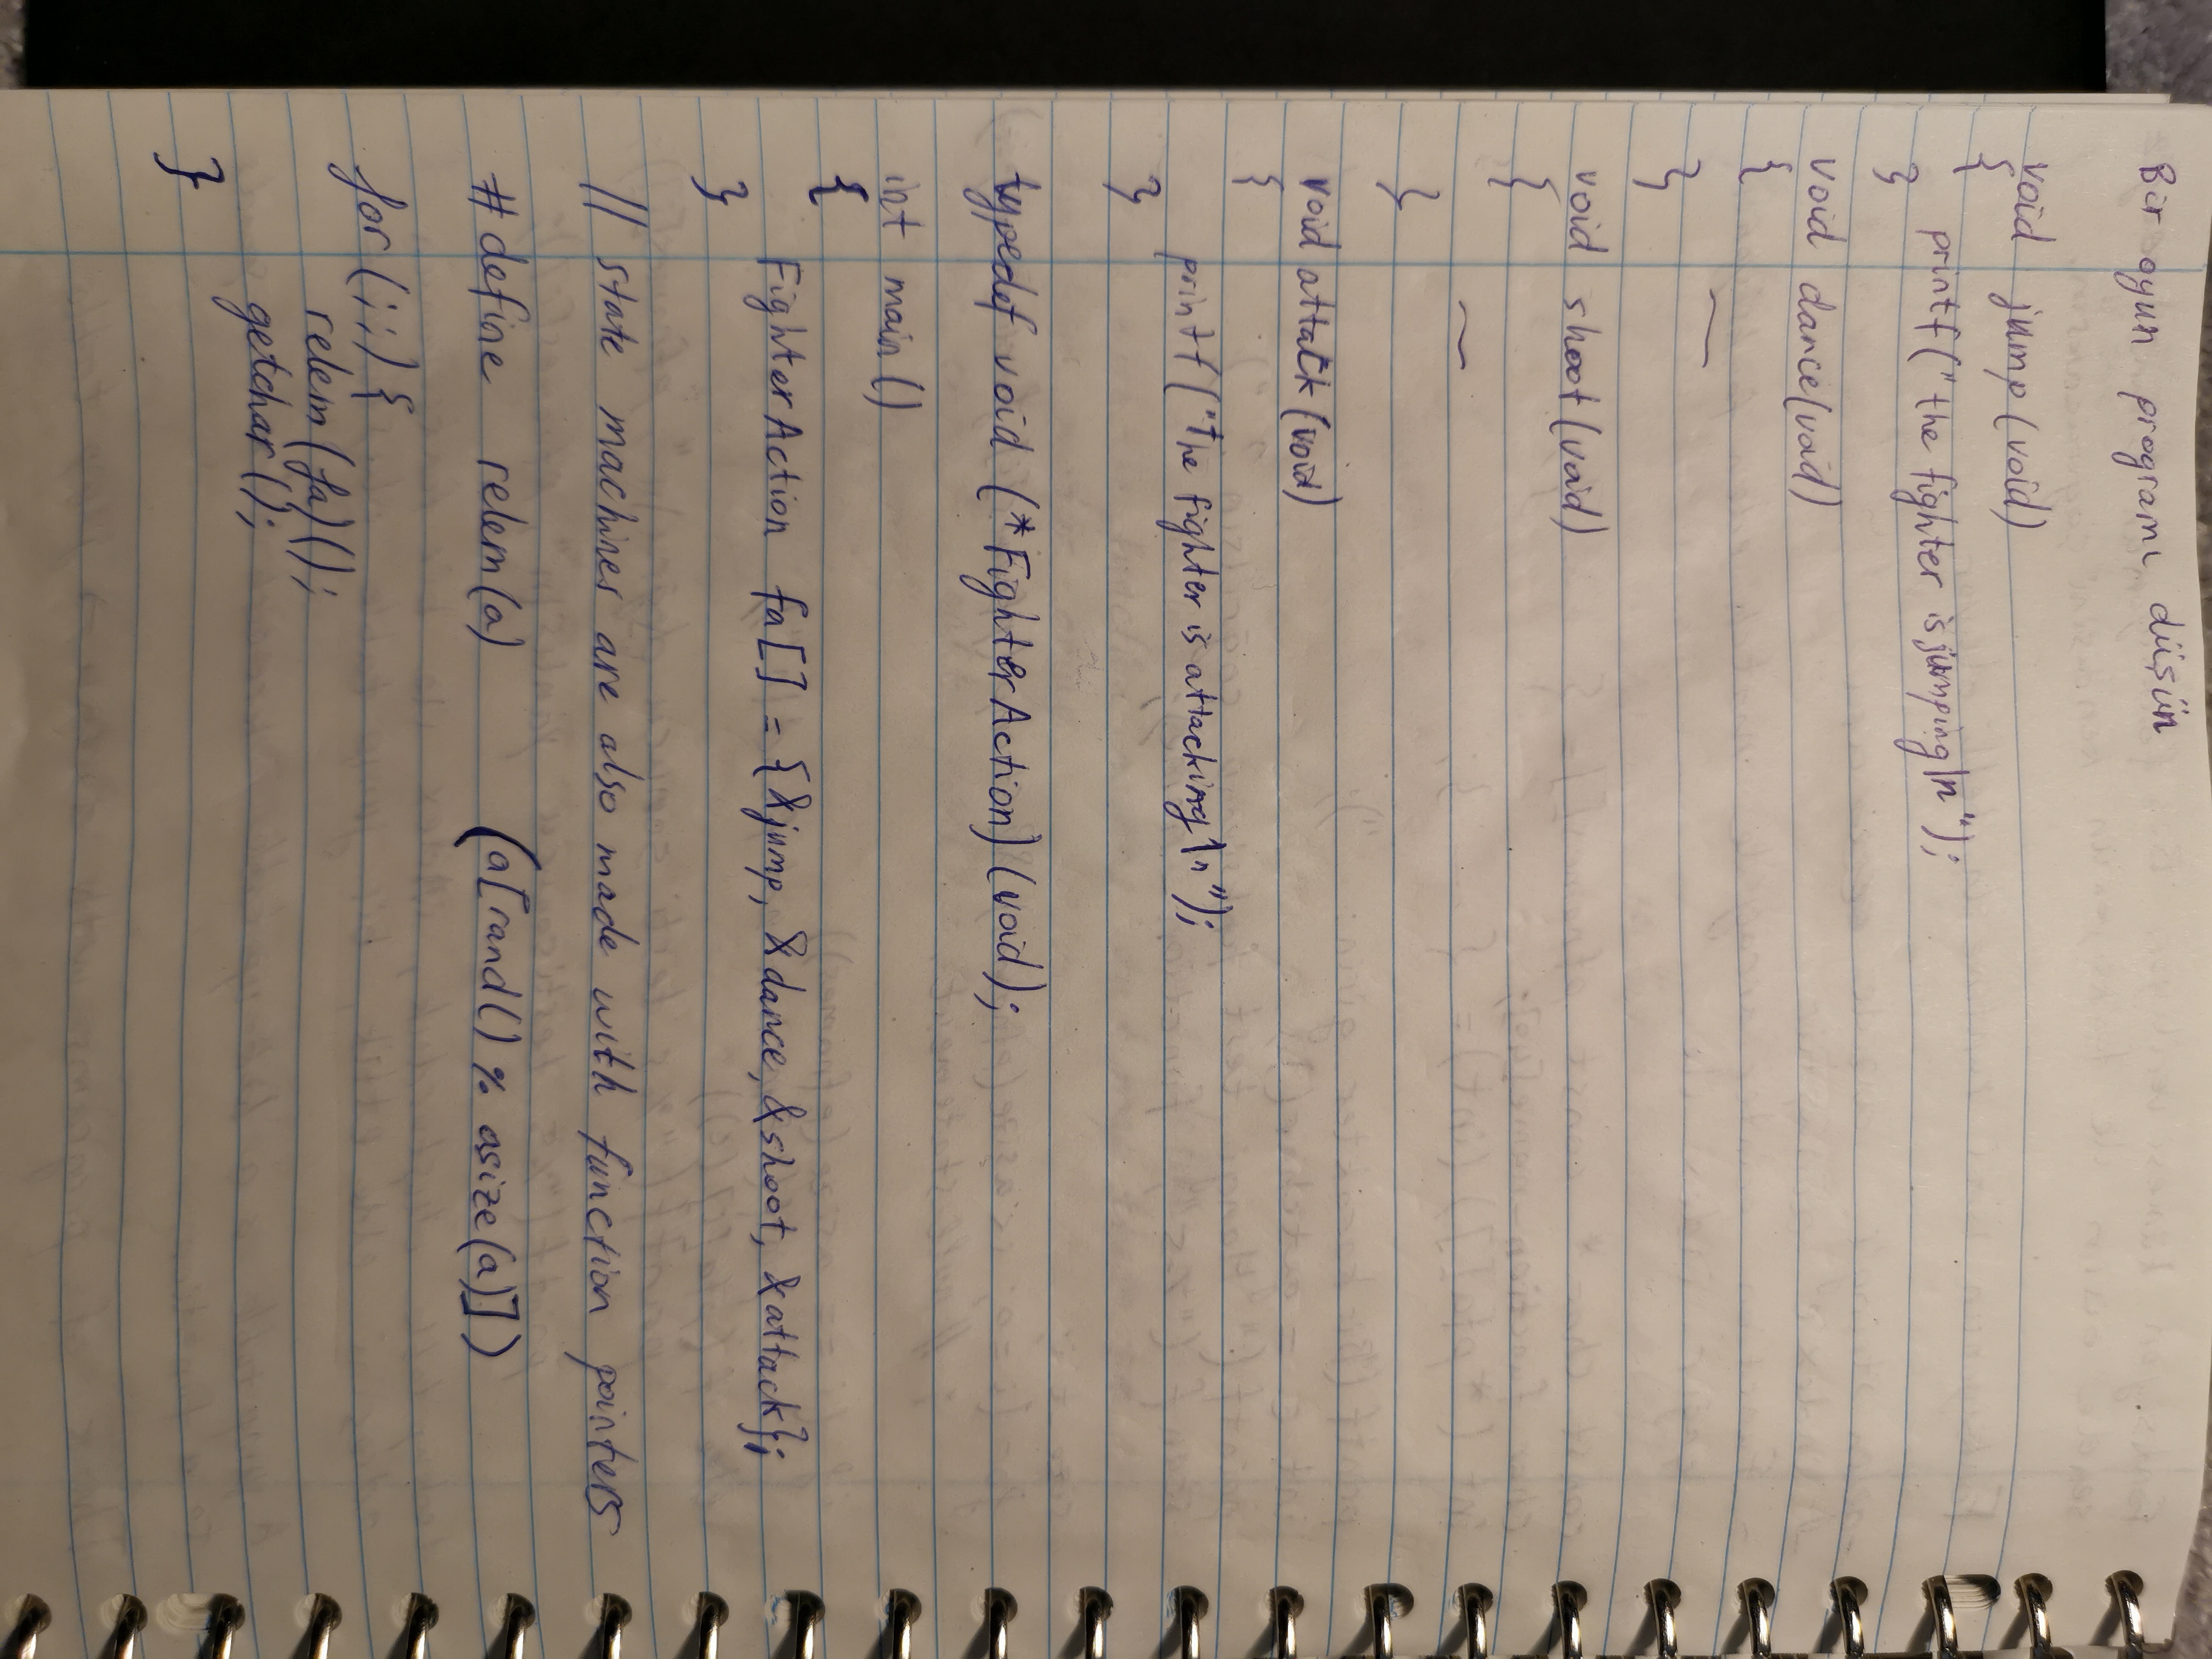 Bir oyun programı düşün
void jump (void)
{
printf("the fighter is jumping\n");
}
void dance(void)
{
}
void shoot (void)
{
}
void attack (void)
{
printf("the fighter is attacking\n");
}
typedef void (*FighterAction) (void);
int main ()
{
FighterAction fa[] = {&jump, &dance, &shoot, &attack};
}
// state machines are also made with function pointers
#define relem(a) (a[rand() % asize(a)])
for (;;) {
relem(fa)();
getchar();
}